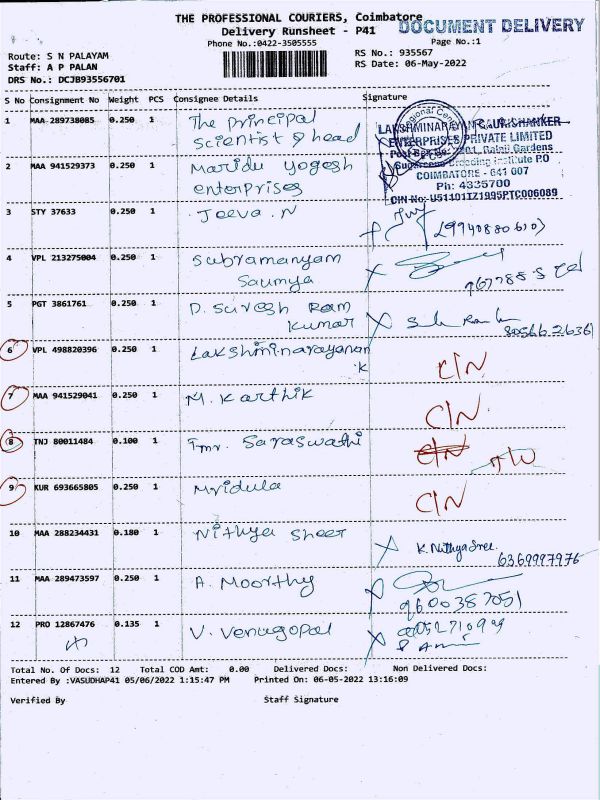 THE PROFESSIONAL COURIERS, Coimbatore
DOCUMENT DELIVERY
Delivery Runsheet - P41
Phone No.:0422-3505555
Page No.:1
Route: S N PALAYAM
RS No.: 935567
Staff: A P PALAN
RS Date: 06-May-2022
DRS No.: DCJB93556701
S No Consignment No Weight PCS Consignee Details Signature
1 MAA 289738085 0.250 1 The principal
scientist & head
LAKSHMINARAYAN GAURISHANKER
ENTERPRISES PRIVATE LIMITED
Sugarcane Breeding Institute P.O
COIMBATORE - 641 007
Ph: 4335700
CIN No: U51101TZ1995PTC006089
2 MAA 941529373 0.250 1 Maridu yogesh
enterprises
3 STY 37633 0.250 1 Jeeva.N
4 VPL 213275004 0.250 1 Subramanyam
Saumya
5 PGT 3861761 0.250 1 D. Suresh Ram
Kumar
6 VPL 498820396 0.250 1 Lakshminarayanan
.K
C/N
7 MAA 941529041 0.250 1 M. Karthik C/N
8 TNJ 80011484 0.100 1 Tmr. Saraswathi C/N
9 KUR 693665805 0.250 1 Mridula C/N
10 MAA 288234431 0.180 1 Nithya sheer X K. Nithya Sree.
6369997976
11 MAA 289473597 0.250 1 A. Moorthy X
9600387051
12 PRO 12867476 0.135 1 V. Venugopal X
Total No. Of Docs: 12 Total COD Amt: 0.00 Delivered Docs: Non Delivered Docs:
Entered By :VASUDHAP41 05/06/2022 1:15:47 PM Printed On: 06-05-2022 13:16:09
Verified By Staff Signature